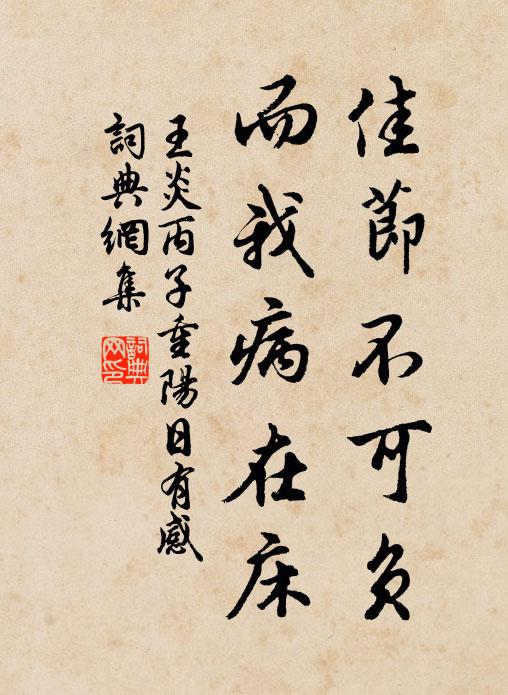 佳節不可負
而我病在床
王炎丙子重陽日有感
詞典網集
詞典網印